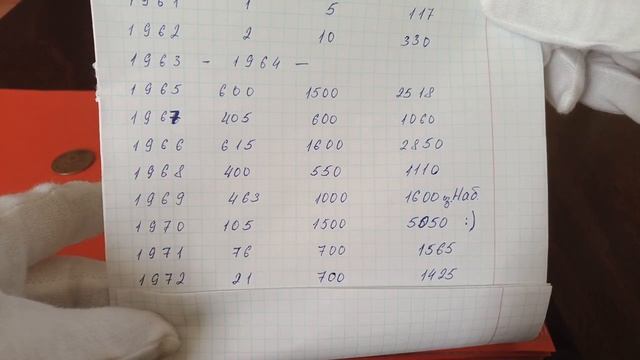 1961 1 5 117
1962 2 10 330
1963 - 1964 -
1965 600 1500 2518
1967 405 600 1060
1966 615 1600 2850
1968 400 550 1110
1969 463 1000 1600 из Наб.
1970 105 1500 5050 :)
1971 76 700 1565
1972 21 700 1425